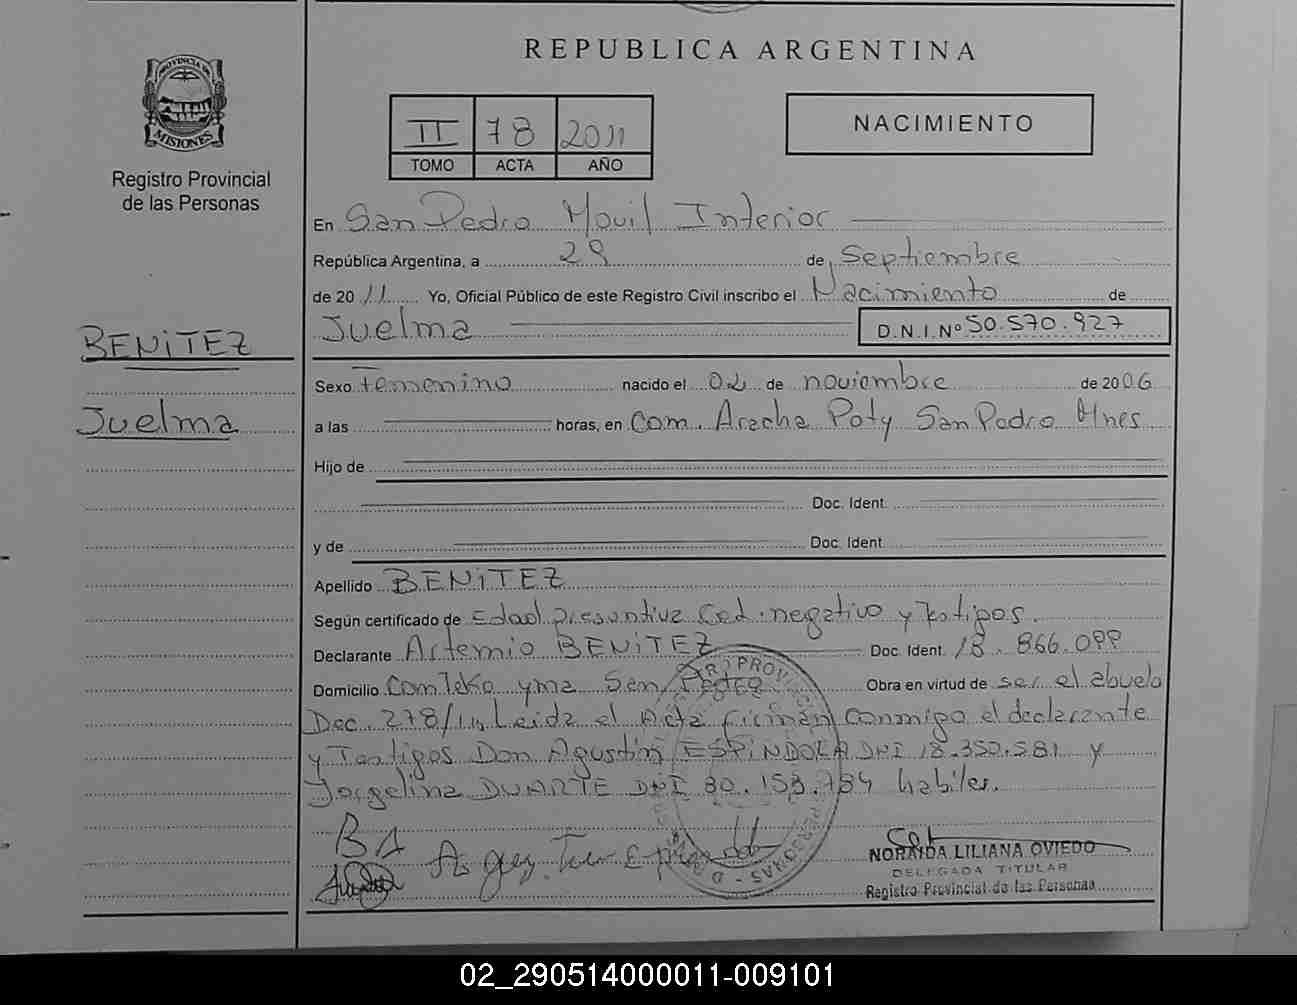 REPUBLICA ARGENTINA
PROVINCIA DE
MISIONES
Registro Provincial
de las Personas
II 78 2011
TOMO ACTA AÑO
NACIMIENTO
En San Pedro Movil Interior
República Argentina, a 29 de Septiembre
de 2011 Yo, Oficial Público de este Registro Civil inscribo el Nacimiento de
Juelma D.N.I.Nº 50.570.927
BENiTEZ
Juelma
Sexo Femenino nacido el 02 de noviembre de 2006
a las horas, en Com. Aracha Poty San Pedro Mnes
Hijo de
Doc. Ident.
y de Doc. Ident.
Apellido BENiTEZ
Según certificado de Edad presuntiva Ced. negativo y testigos.
Declarante Artemio BENiTEZ Doc. Ident. 18.866.099
Domicilio Com Teko yma San Pedro Obra en virtud de ser el abuelo
Dec. 278/11, Leida el Acta firman conmigo el declarante
y Testigos Don Agustin ESPiNDOLA DNI 18.350.581 y
Jorgelina DUARTE DNI 30.153.784 habiles.
BA
NORAIDA LILIANA OVIEDO
DELEGADA TITULAR
Registro Provincial de las Personas
02_290514000011-009101